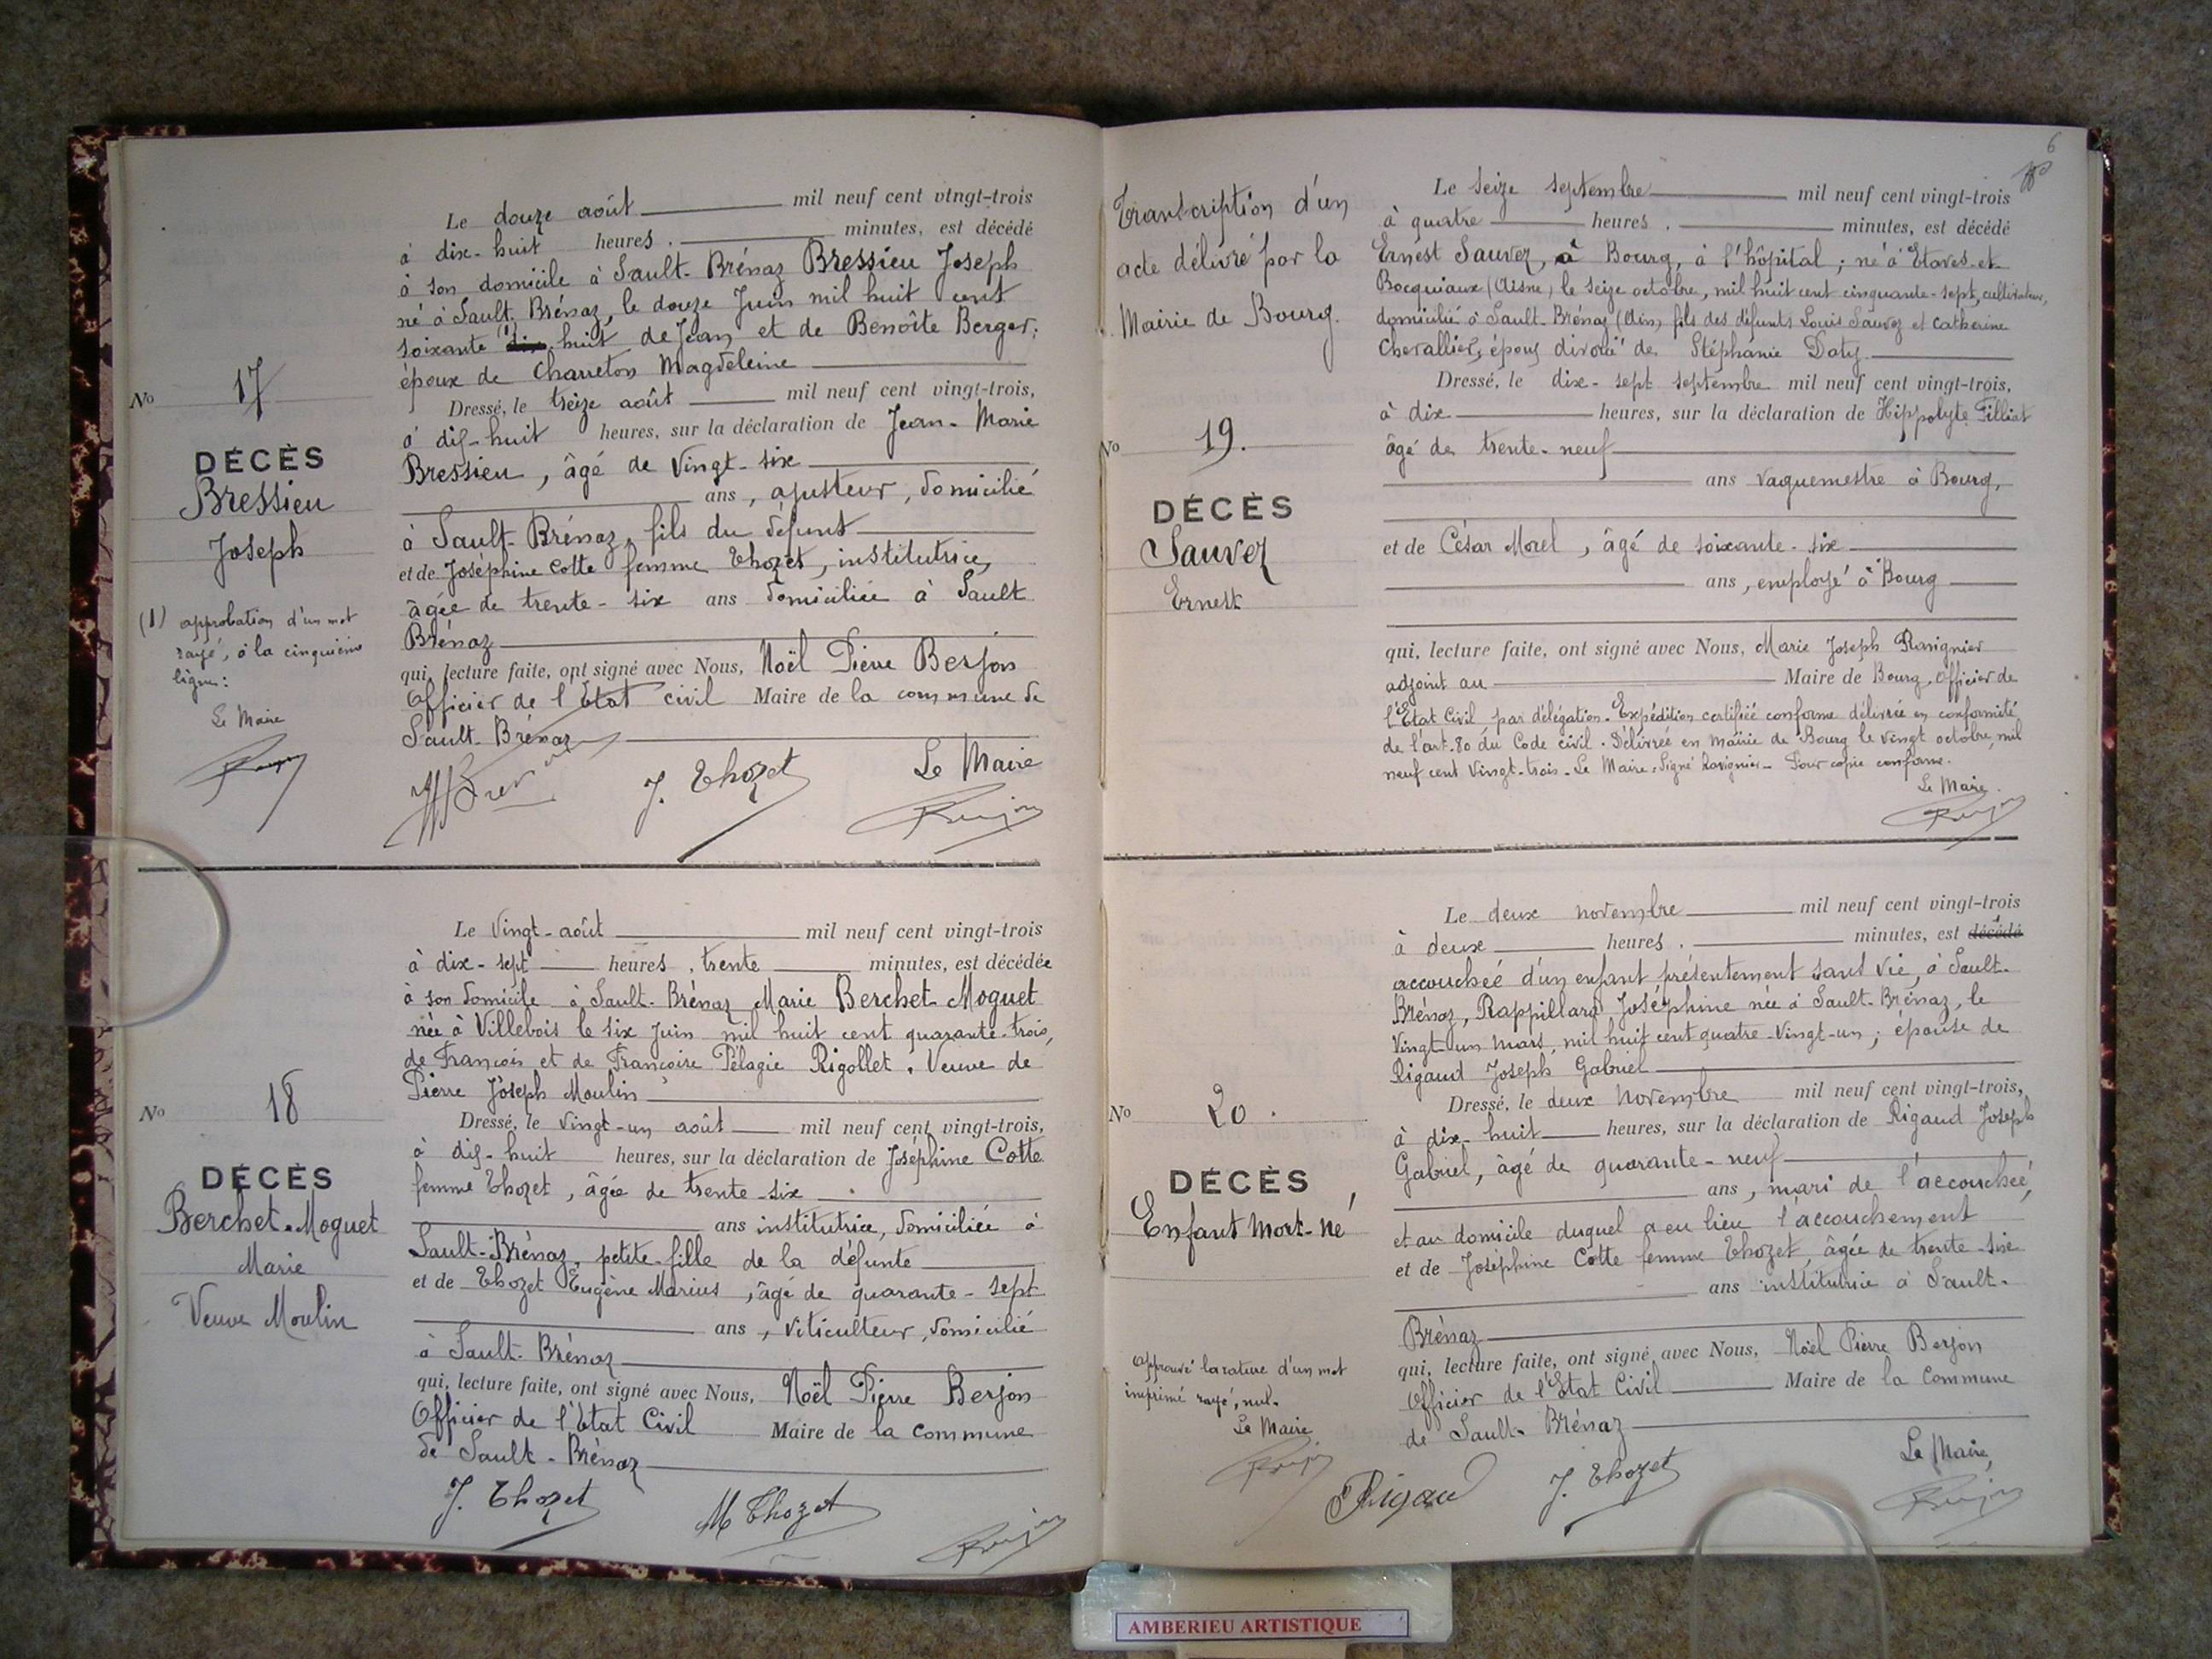 Le douze août mil neuf cent vingt-trois
à dix-huit heures, minutes, est décédé
à son domicile à Sault-Brénaz Bressieu Joseph
né à Sault-Brénaz, le douze Juin mil huit cent
soixante (1) dix huit de Jean et de Benoîte Berger;
époux de Charreton Magdeleine
No 17
Dressé, le treize août mil neuf cent vingt-trois,
à dix-huit heures, sur la déclaration de Jean-Marie
DÉCÈS
Bressieu
Joseph
Bressieu, âgé de vingt-six
ans, ajusteur, domicilié
à Sault-Brénaz, fils du défunt
et de Joséphine Cotte femme Thozet, institutrice,
âgée de trente-six ans domiciliée à Sault
Brénaz
(1) approbation d'un mot
rayé, à la cinquième
ligne:
Le Maire
qui, lecture faite, ont signé avec Nous, Noël Pierre Berjon
Officier de l'Etat civil Maire de la commune de
Sault-Brénaz
J. Thozet
Le Maire
Le Vingt-août mil neuf cent vingt-trois
à dix-sept heures, trente minutes, est décédée
à son domicile à Sault-Brénaz Marie Berchet-Moguet
née à Villebois le six Juin mil huit cent quarante-trois,
de François et de Françoise Pélagie Rigollet. Veuve de
Pierre Joseph Moulin
No 18
Dressé, le vingt-un août mil neuf cent vingt-trois,
à dix-huit heures, sur la déclaration de Joséphine Cotte
femme Thozet, âgée de trente-six
DÉCÈS
Berchet-Moguet
Marie
Veuve Moulin
ans institutrice, domiciliée à
Sault-Brénaz, petite-fille de la défunte
et de Thozet Eugène Marius, âgé de quarante-sept
ans, viticulteur, domicilié
à Sault-Brénaz
qui, lecture faite, ont signé avec Nous, Noël Pierre Berjon
Officier de l'Etat Civil Maire de la commune
de Sault-Brénaz
J. Thozet
M Thozet
6
Transcription d'un
acte délivré par la
Mairie de Bourg.
Le seize septembre mil neuf cent vingt-trois
à quatre heures, minutes, est décédé
Ernest Sauvez, à Bourg, à l'hôpital; né à Etaves-et-
Bocquiaux (Aisne) le seize octobre, mil huit cent cinquante-sept, cultivateur,
domicilié à Sault-Brénaz (Ain) fils des défunts Louis Sauvez et Catherine
Chevallier, époux divorcé de Stéphanie Daty
Dressé, le dix-sept septembre mil neuf cent vingt-trois,
à dix heures, sur la déclaration de Hippolyte Filliat
No 19.
DÉCÈS
Sauvez
Ernest
âgé de trente-neuf
ans vaguemestre à Bourg,
et de César Morel, âgé de soixante-six
ans, employé à Bourg
qui, lecture faite, ont signé avec Nous, Marie Joseph Ravignier
adjoint au Maire de Bourg, Officier de
l'Etat Civil par délégation. Expédition certifiée conforme délivrée en conformité
de l'art. 80 du Code civil. Délivrée en mairie de Bourg le vingt octobre, mil
neuf cent vingt-trois. Le Maire, Signé Ravignier. Pour copie conforme.
Le Maire.
Le deux novembre mil neuf cent vingt-trois
à deux heures, minutes, est décédé
accouchée d'un enfant présentement sans vie, à Sault-
Brénaz, Rappillard Joséphine née à Sault-Brénaz, le
vingt-un mars, mil huit cent quatre-vingt-un; épouse de
Rigaud Joseph Gabriel
No 20.
Dressé, le deux novembre mil neuf cent vingt-trois,
à dix-huit heures, sur la déclaration de Rigaud Joseph
Gabriel, âgé de quarante-neuf
DÉCÈS
Enfant Mort-Né
ans, mari de l'accouchée,
et au domicile duquel a eu lieu l'accouchement
et de Joséphine Cotte femme Thozet, âgée de trente-six
ans institutrice à Sault-
Brénaz
Approuvé la rature d'un mot
imprimé rayé, nul.
Le Maire
qui, lecture faite, ont signé avec Nous, Noël Pierre Berjon
Officier de l'Etat Civil Maire de la Commune
de Sault-Brénaz
Rigaud
J. Thozet
Le Maire,
AMBERIEU ARTISTIQUE